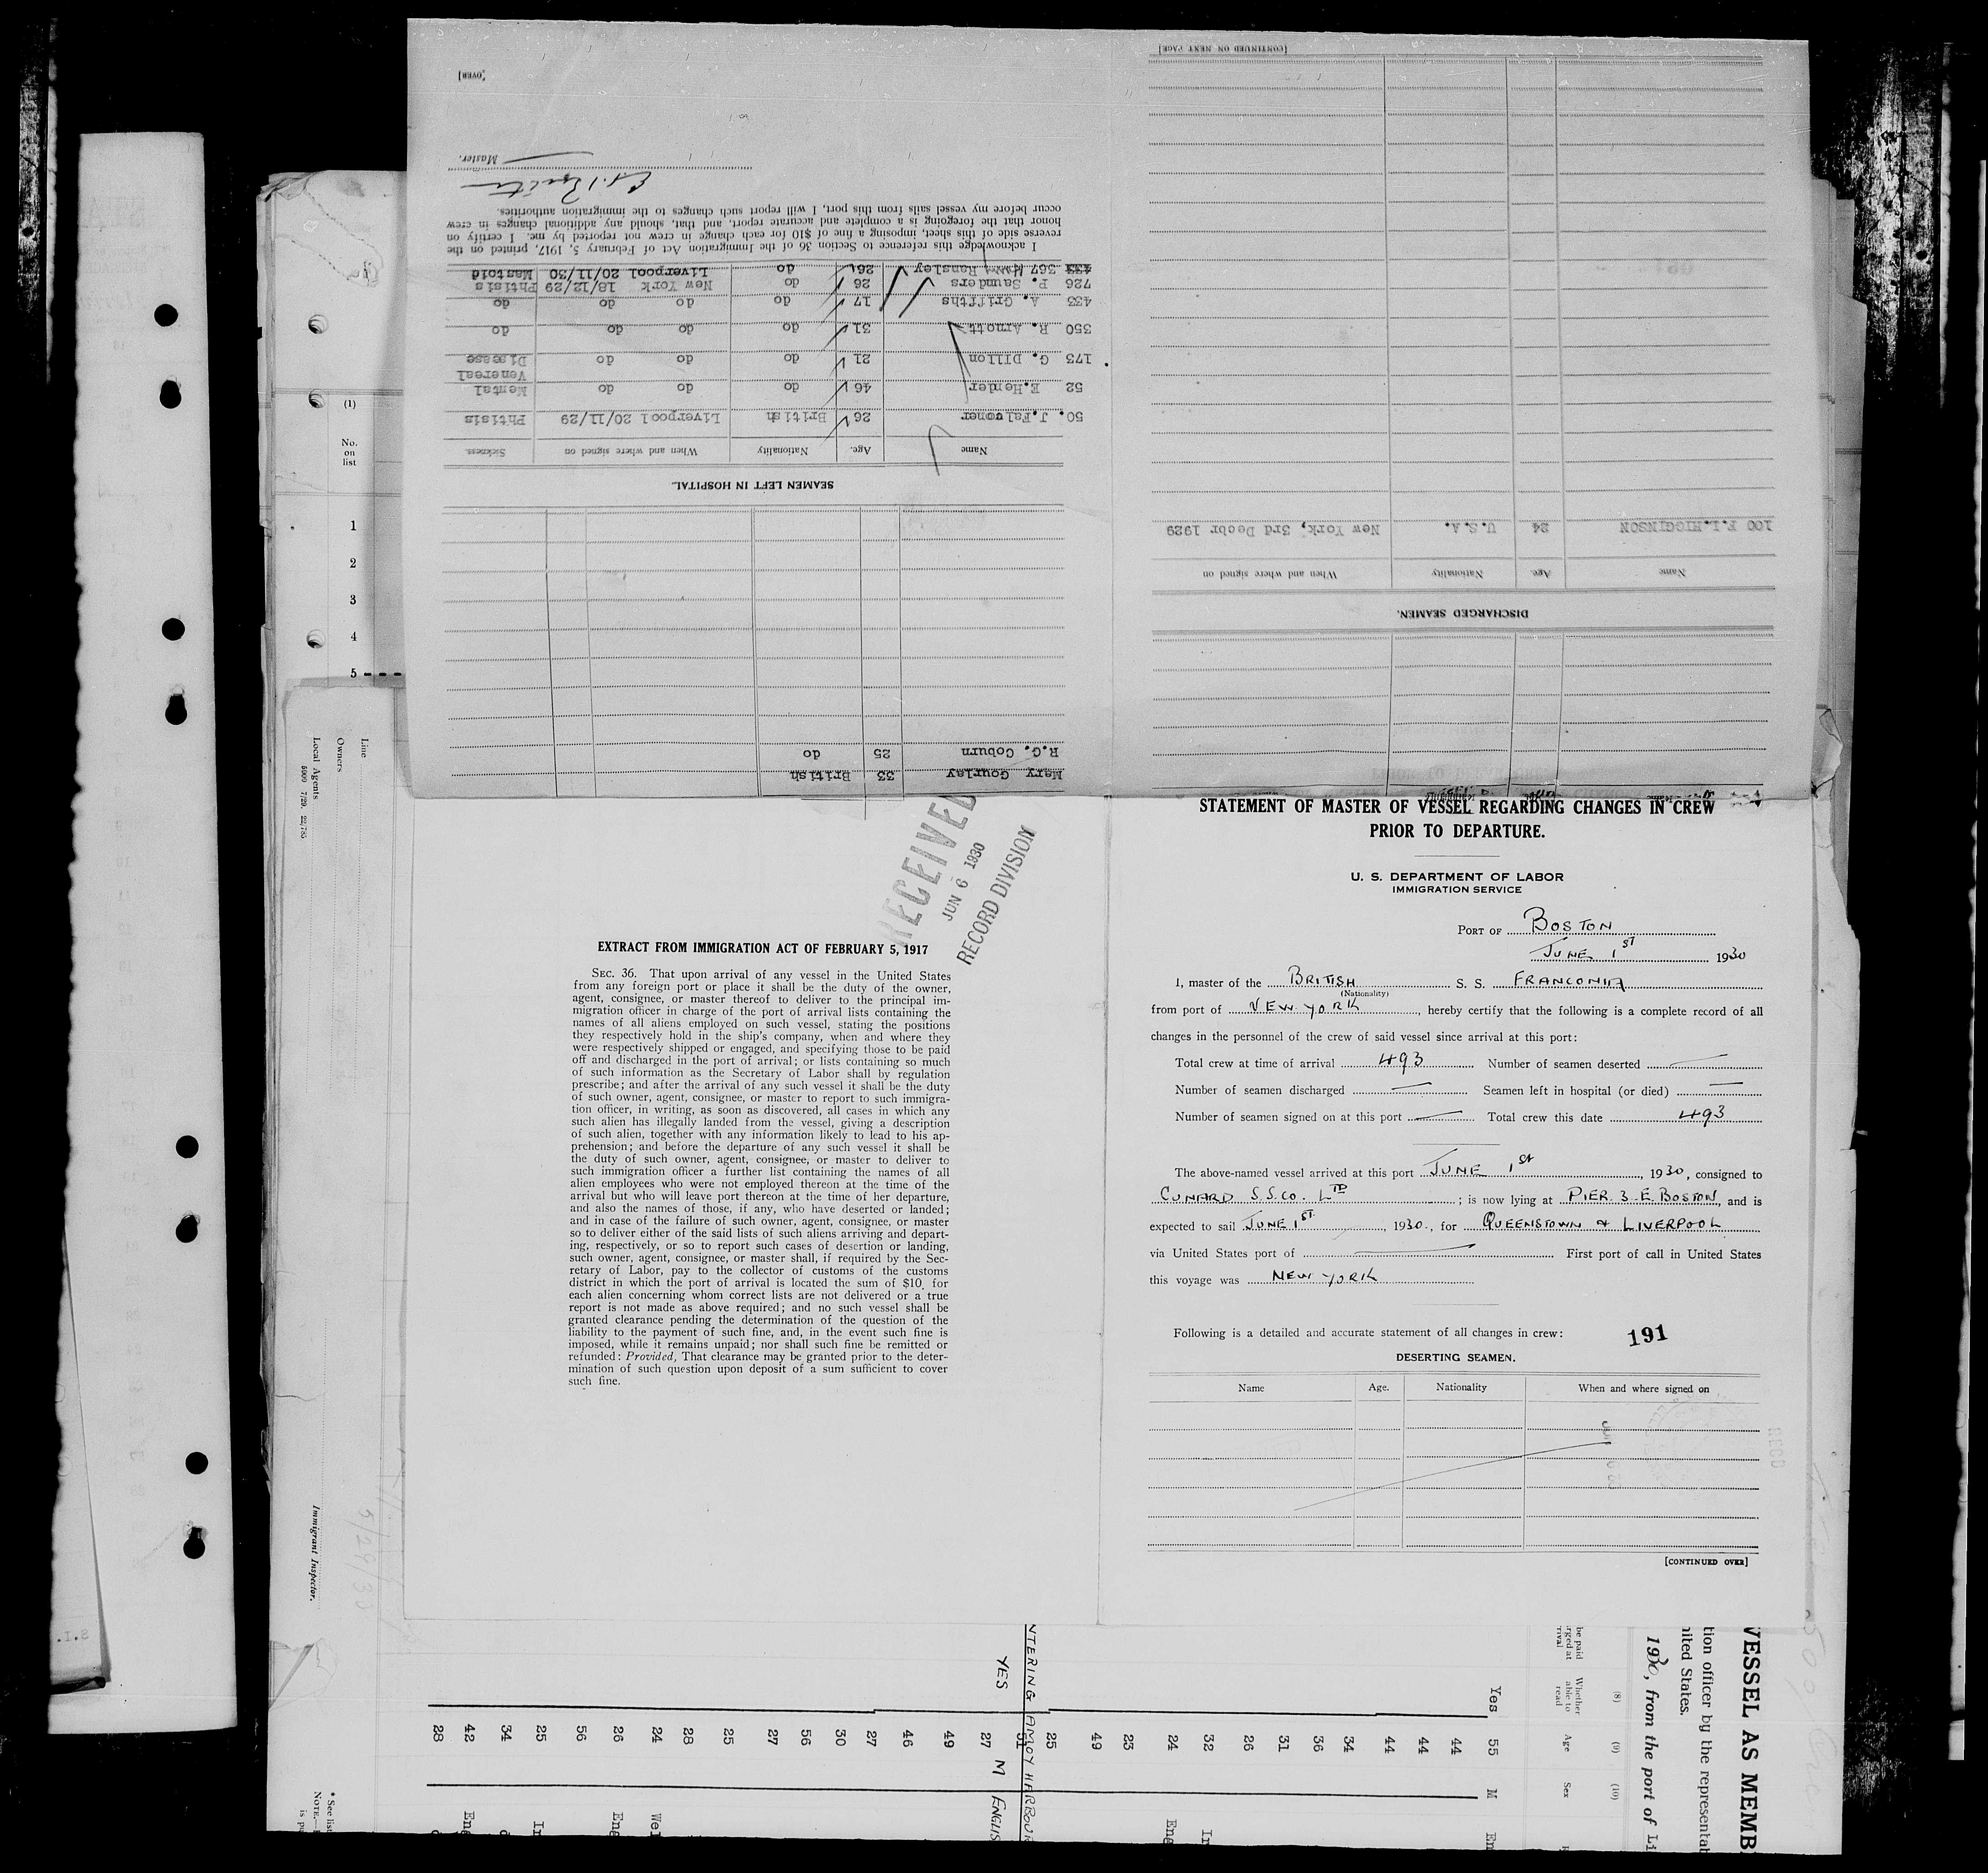 STATEMENT OF MASTER OF VESSEL REGARDING CHANGES IN CREW
PRIOR TO DEPARTURE.
U. S. DEPARTMENT OF LABOR
IMMIGRATION SERVICE
PORT OF BOSTON
JUNE 1ST 1930
I, master of the BRITISH S. S. FRANCONIA
(Nationality)
from port of NEW YORK, hereby certify that the following is a complete record of all
changes in the personnel of the crew of said vessel since arrival at this port:
Total crew at time of arrival 493 Number of seamen deserted —
Number of seamen discharged — Seamen left in hospital (or died) —
Number of seamen signed on at this port — Total crew this date 493
The above-named vessel arrived at this port JUNE 1st, 1930, consigned to
CUNARD S.S.CO. LTD; is now lying at PIER 3 E. BOSTON, and is
expected to sail JUNE 1ST, 1930, for QUEENSTOWN & LIVERPOOL
via United States port of — First port of call in United States
this voyage was NEW YORK
Following is a detailed and accurate statement of all changes in crew: 191
DESERTING SEAMEN.
Name Age. Nationality When and where signed on
[CONTINUED OVER]
RECEIVED
JUN 6 1930
RECORD DIVISION
EXTRACT FROM IMMIGRATION ACT OF FEBRUARY 5, 1917
SEC. 36. That upon arrival of any vessel in the United States
from any foreign port or place it shall be the duty of the owner,
agent, consignee, or master thereof to deliver to the principal im-
migration officer in charge of the port of arrival lists containing the
names of all aliens employed on such vessel, stating the positions
they respectively hold in the ship's company, when and where they
were respectively shipped or engaged, and specifying those to be paid
off and discharged in the port of arrival; or lists containing so much
of such information as the Secretary of Labor shall by regulation
prescribe; and after the arrival of any such vessel it shall be the duty
of such owner, agent, consignee, or master to report to such immigra-
tion officer, in writing, as soon as discovered, all cases in which any
such alien has illegally landed from the vessel, giving a description
of such alien, together with any information likely to lead to his ap-
prehension; and before the departure of any such vessel it shall be
the duty of such owner, agent, consignee, or master to deliver to
such immigration officer a further list containing the names of all
alien employees who were not employed thereon at the time of the
arrival but who will leave port thereon at the time of her departure,
and also the names of those, if any, who have deserted or landed;
and in case of the failure of such owner, agent, consignee, or master
so to deliver either of the said lists of such aliens arriving and depart-
ing, respectively, or so to report such cases of desertion or landing,
such owner, agent, consignee, or master shall, if required by the Sec-
retary of Labor, pay to the collector of customs of the customs
district in which the port of arrival is located the sum of $10 for
each alien concerning whom correct lists are not delivered or a true
report is not made as above required; and no such vessel shall be
granted clearance pending the determination of the question of the
liability to the payment of such fine, and, in the event such fine is
imposed, while it remains unpaid; nor shall such fine be remitted or
refunded: Provided, That clearance may be granted prior to the deter-
mination of such question upon deposit of a sum sufficient to cover
such fine.
DISCHARGED SEAMEN.
Name Age. Nationality When and where signed on
100 F.L.HIGGINSON 24 U.S.A. New York, 3rd Decbr 1929
[CONTINUED ON NEXT PAGE]
Mary Gourlay 33 British
R.G. Coburn 25 do
SEAMEN LEFT IN HOSPITAL.
Name Age. Nationality When and where signed on Sickness.
50. J.Falconer 26 British Liverpool 20/11/29 Phtisis
52 E.Henler 46 do do do Mental
173 G. Dillon 21 do do do Venereal Disease
350 R. Arnott 31 do do do do
433 A. Griffths 17 do do do do
726 P. Saunders 26 do New York 18/12/29 Phtisis
367 Ransley 26 do Liverpool 20/11/30 Mastoid
I acknowledge this reference to Section 36 of the Immigration Act of February 5, 1917, printed on the
reverse side of this sheet, imposing a fine of $10 for each change in crew not reported by me. I certify on
honor that the foregoing is a complete and accurate report, and that, should any additional changes in crew
occur before my vessel sails from this port, I will report such changes to the immigration authorities.
Master.
[OVER]
(1)
No.
on
list
1
2
3
4
5
Line
Owners
Local Agents
5909 7/29. 22,785
Immigrant Inspector.
* See list
NOTE.—
is pu
S.I.
VESSEL AS MEMB
tion officer by the representat
nited States.
1930, from the port of Li
(8) (9) (10)
be paid
rged at
rival
Whether
able to
read
Age
Sex
Yes 55 M En
44
44
44
34
36
31
26
32 Ir
24 Eng
23
49
25
NTERING AMOY HARBOUR
51
YES 27 M ENGLIS
49
46
27
30
56
25
28
24 Wel
26 Eng
56
25 Ir
34
42 Eng
28